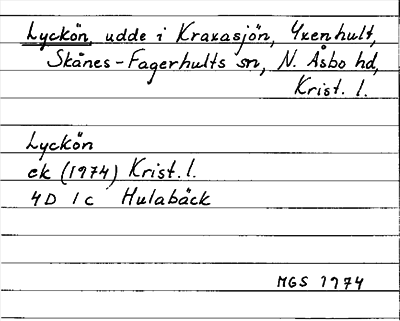 Lyckön, udde i Kraxasjön, Yxenhult,
Skånes-Fagerhults sn, N. Åsbo hd,
Krist. l.
Lyckön
ek (1974) Krist. l.
4D 1c Hulabäck
MGS 1974